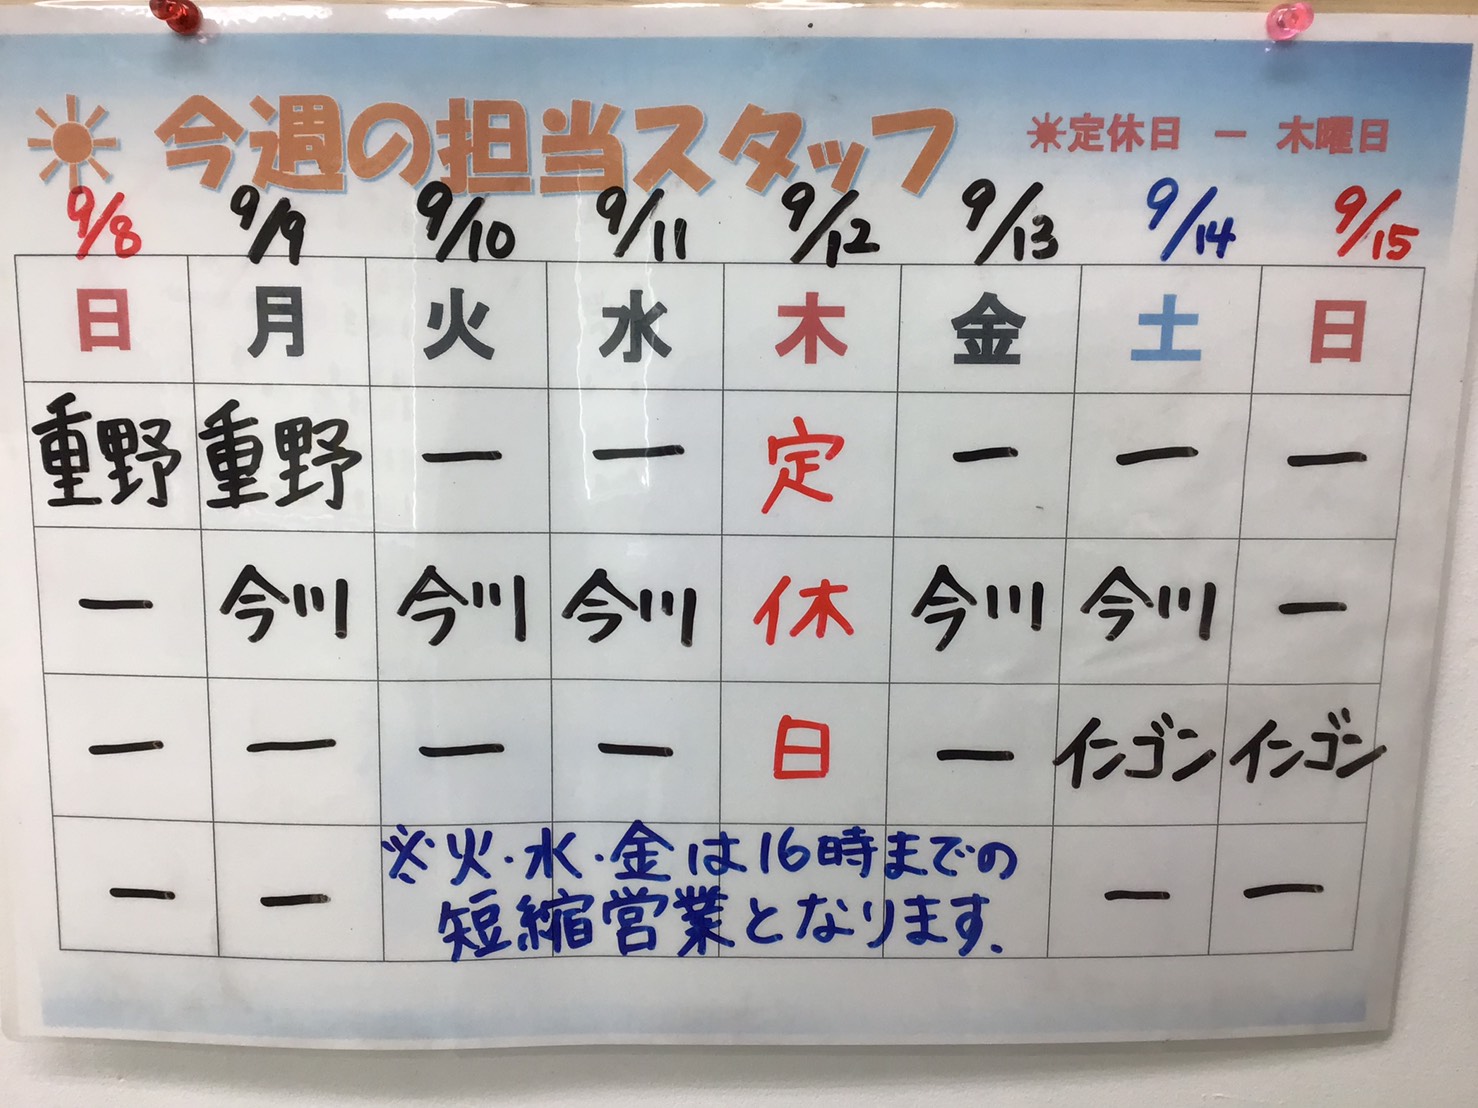 ☀今週の担当スタッフ ☀定休日 ー 木曜日
9/8 9/9 9/10 9/11 9/12 9/13 9/14 9/15
日 月 火 水 木 金 土 日
重野 重野 ー ー 定 ー ー ー
ー 今川 今川 今川 休 今川 今川 ー
ー ー ー ー 日 ー インゴン インゴン
ー ー ※火・水・金は16時までの ー ー
短縮営業となります.